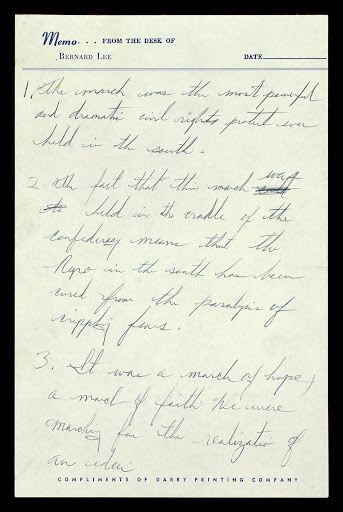 Memo . . . FROM THE DESK OF
BERNARD LEE DATE
1. The march was the most powerful
and dramatic civil rights protest ever
held in the south.
2. The fact that this march was
held in the cradle of the
confederecy means that the
Negro in the south has been
cured from the paralysis of
crippling fears.
3. It was a march of hope,
a march of faith. We were
marching for the realization of
an idea
COMPLIMENTS OF DARBY PRINTING COMPANY